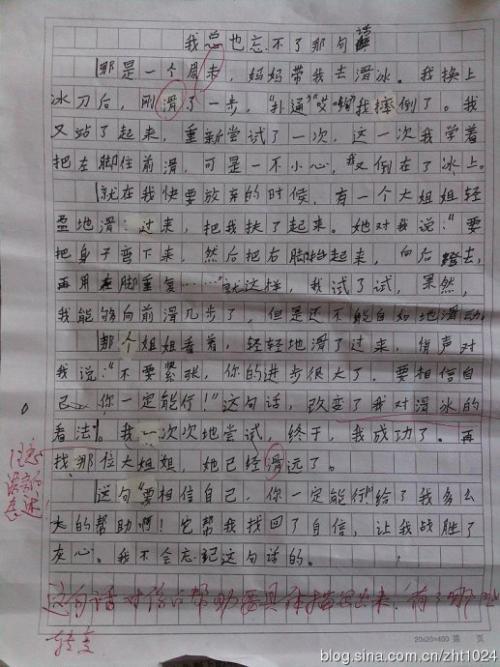 我总也忘不了那句话
那是一个周末，妈妈带我去滑冰。我换上
冰刀后，刚滑了一步，“扑通”“哎哟”我摔倒了。我
又站了起来，重新尝试了一次，这一次我学着
把左脚往前滑，可是一不小心，我又倒在了冰上。
就在我快要放弃的时候，有一个大姐姐轻
盈地滑过来，把我扶了起来。她对我说：“要
把身子弯下来，然后把右脚抬起来，向后蹬去，
再用左脚重复……”就这样，我试了试，果然，
我能够向前滑几步了，但是还不能自如地滑动。
那个姐姐看着，轻轻地滑了过来，悄声对
我说：“不要紧张，你的进步很大了，要相信自
己，你一定能行！”这句话，改变了我对滑冰的
看法。我一次次地尝试，终于，我成功了。再
找那位大姐姐，她已经滑远了。
这句“要相信自己，你一定能行”给了我多么
大的帮助啊！它帮我找回了自信，让我战胜了
灰心。我不会忘记这句话的。
注意
语言的
表述
这句话对你的帮助要具体描写出来，有了哪些
转变
20x20=400 第 页
blog.sina.com.cn/zht1024